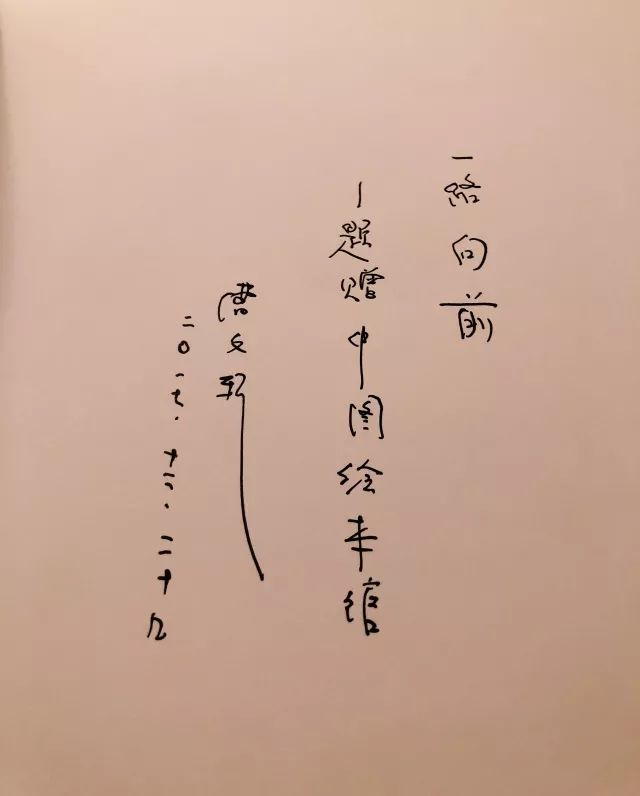 一路向前
—题赠中图绘本馆
曹文轩
二〇一七.十二.二十九